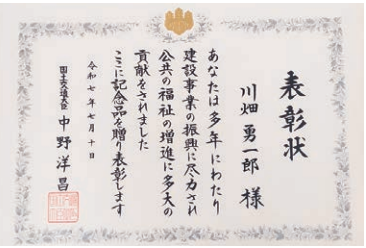 表彰状
川畑勇一郎 様
あなたは多年にわたり
建設事業の振興に尽力され
公共の福祉の増進に多大の
貢献をされました
ここに記念品を贈り表彰します
令和七年七月十日
国土交通大臣 中野洋昌